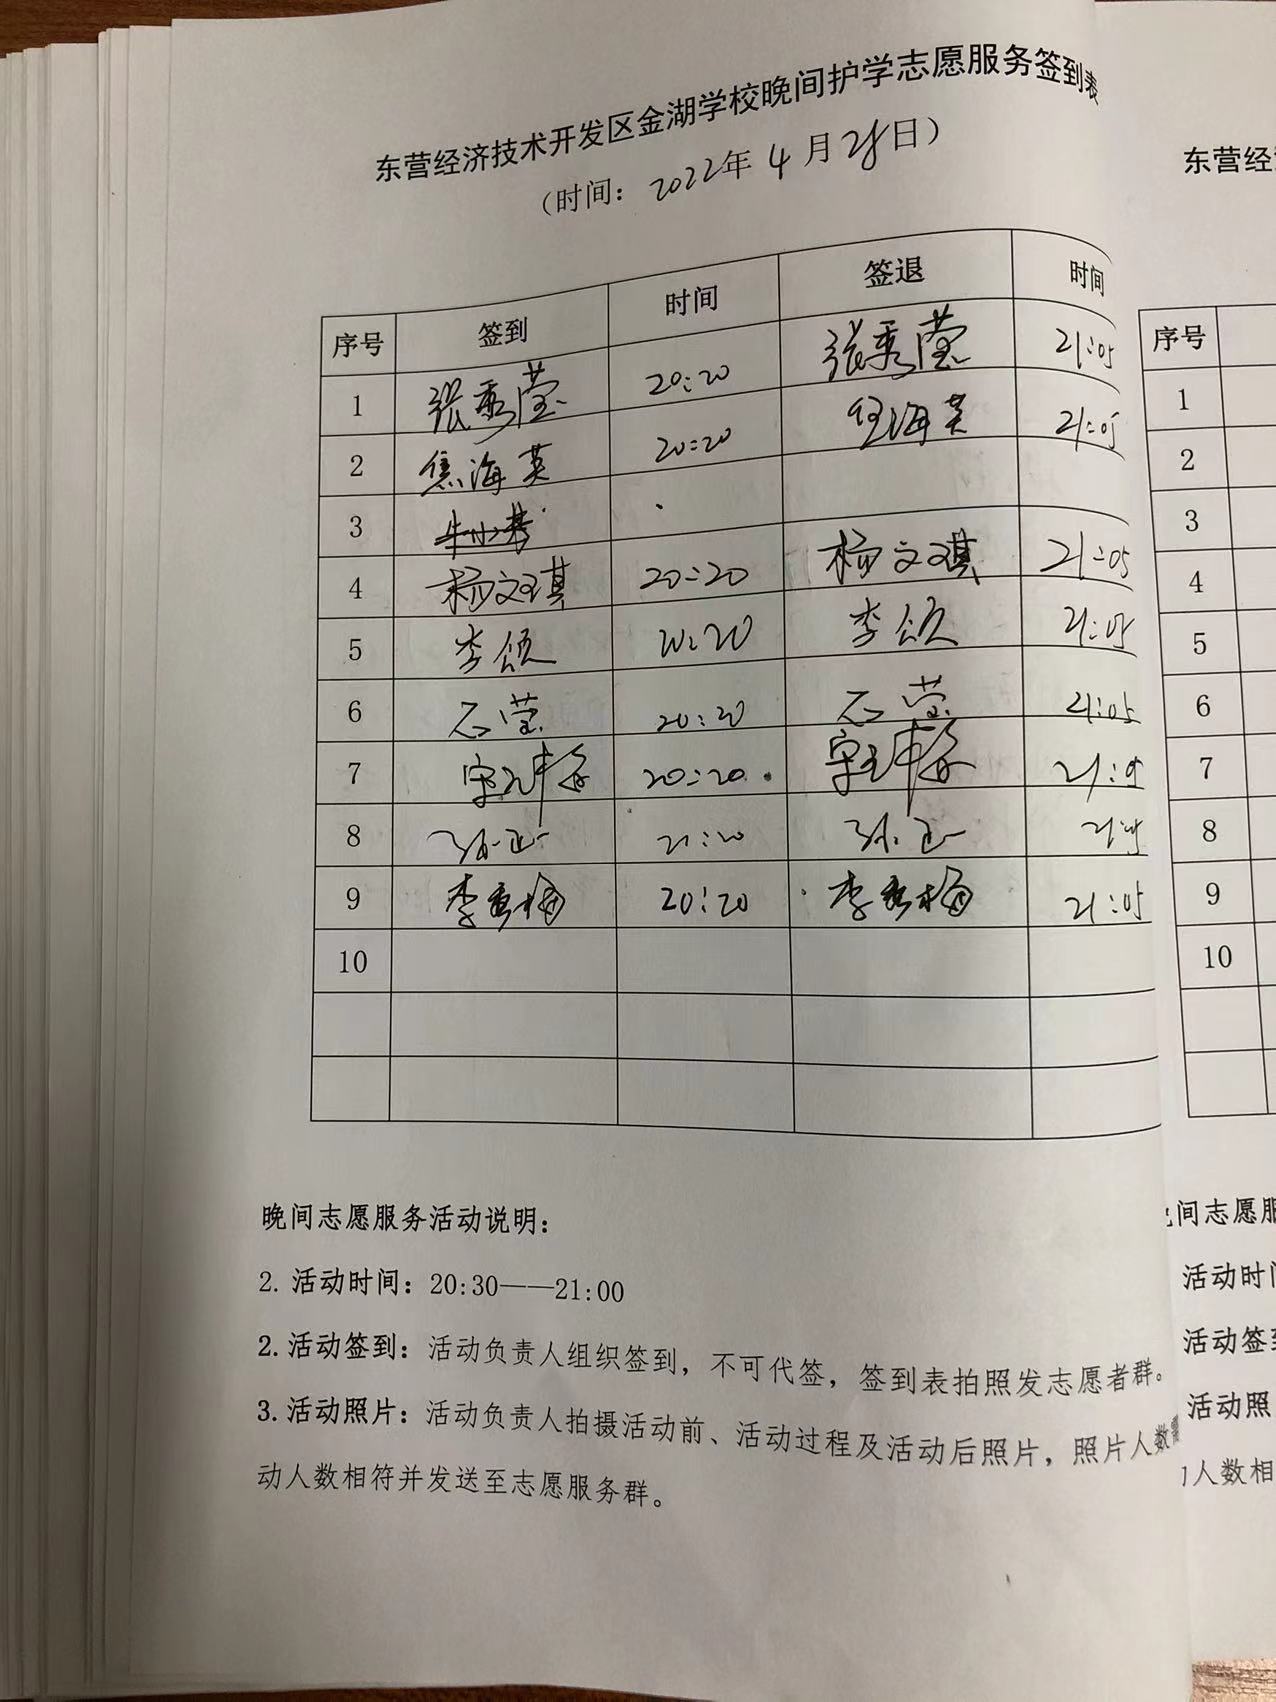 东营经济技术开发区金湖学校晚间护学志愿服务签到表
（时间：2022年4月28日）
序号 签到 时间 签退 时间
1 张秀莹 20:20 张秀莹 21:05
2 焦海英 20:20 焦海英 21:05
3
4 杨文琪 20:20 杨文琪 21:05
5 李颂 20:20 李颂 21:05
6 石莹 20:20 石莹 21:05
7 20:20 21:05
8 21:20 21:05
9 李秀梅 20:20 李秀梅 21:05
10
晚间志愿服务活动说明：
2. 活动时间：20:30——21:00
2. 活动签到：活动负责人组织签到，不可代签，签到表拍照发志愿者群。
3. 活动照片：活动负责人拍摄活动前、活动过程及活动后照片，照片人数需
动人数相符并发送至志愿服务群。
东营经
序号
1
2
3
4
5
6
7
8
9
10
间志愿服
活动时间
活动签到
活动照
人数相